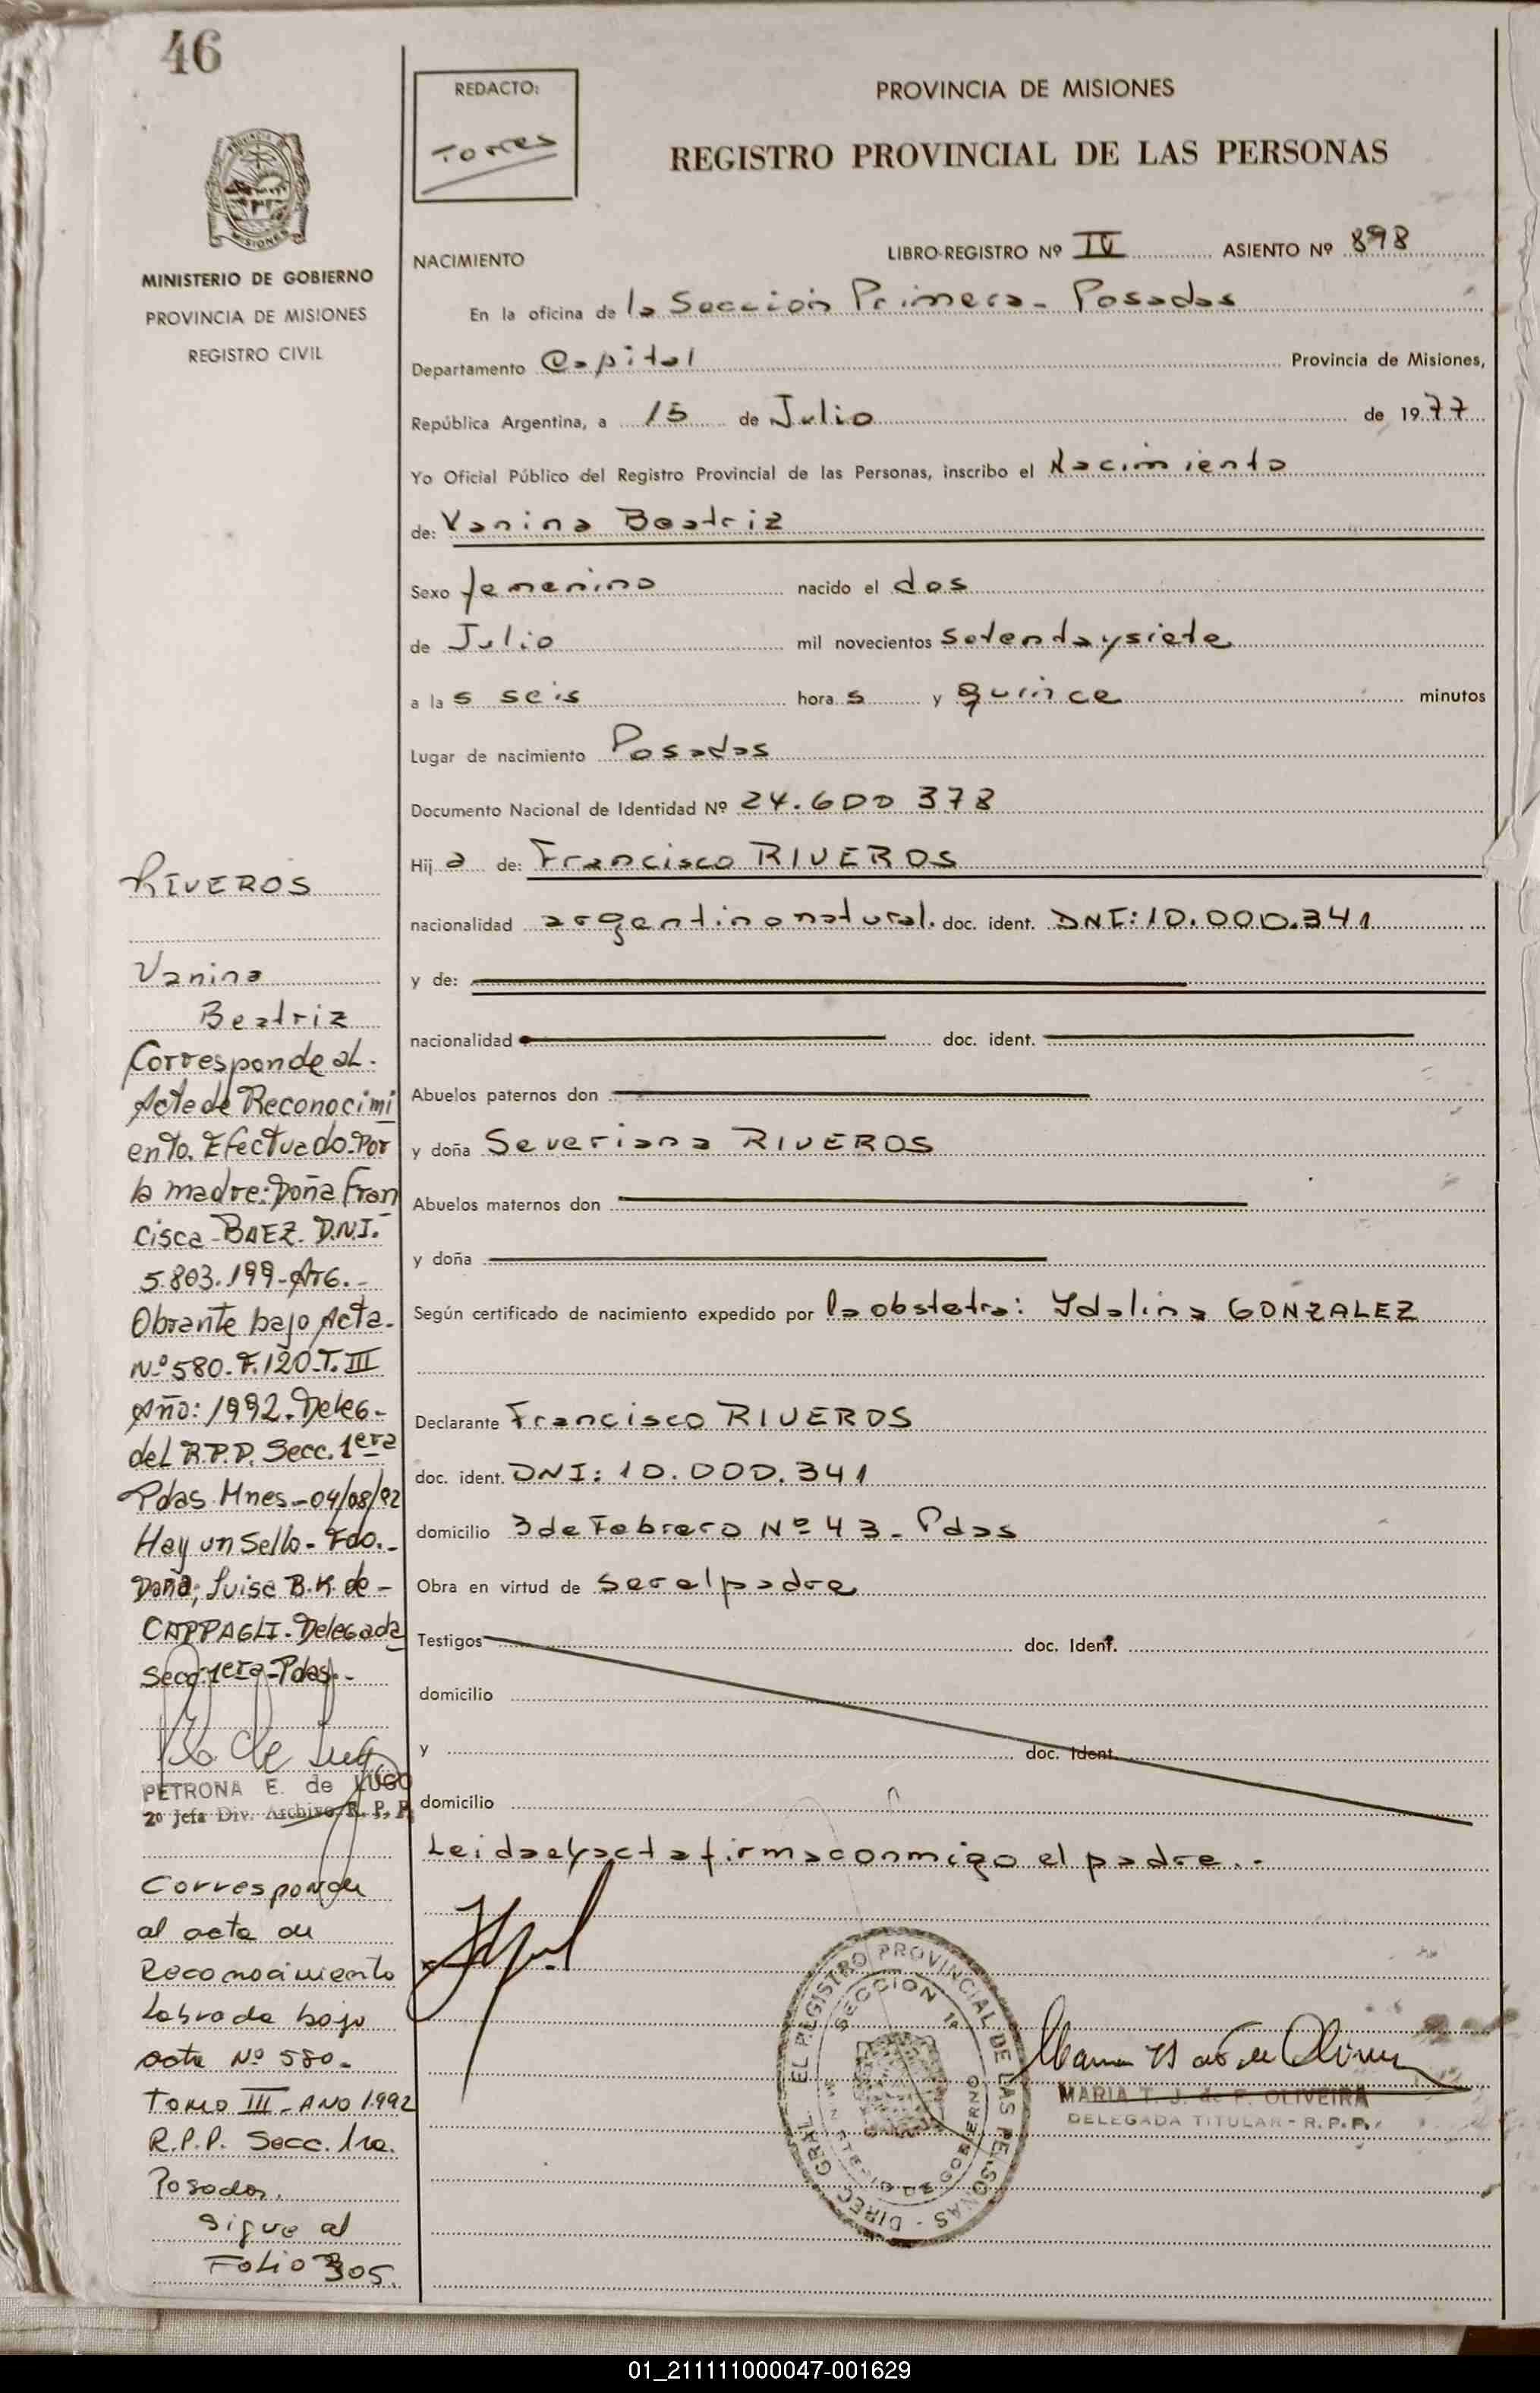 46
REDACTO:
Torres
PROVINCIA DE MISIONES
REGISTRO PROVINCIAL DE LAS PERSONAS
MISIONES
MINISTERIO DE GOBIERNO
PROVINCIA DE MISIONES
REGISTRO CIVIL
NACIMIENTO
LIBRO-REGISTRO Nº IV ASIENTO Nº 898
En la oficina de la Sección Primera - Posadas
Departamento Capital Provincia de Misiones,
República Argentina, a 15 de Julio de 1977
Yo Oficial Público del Registro Provincial de las Personas, inscribo el Nacimiento
de: Vanina Beatriz
Sexo femenino nacido el dos
de Julio mil novecientos setenta y siete
a las seis horas y quince minutos
Lugar de nacimiento Posadas
Documento Nacional de Identidad Nº 24.600 378
Hija de: Francisco RIVEROS
nacionalidad argentino natural. doc. ident. DNI: 10.000.341
y de:
nacionalidad doc. ident.
Abuelos paternos don
y doña Severiana RIVEROS
Abuelos maternos don
y doña
Según certificado de nacimiento expedido por la obstetra: Ydalina GONZALEZ
Declarante Francisco RIVEROS
doc. ident. DNI: 10.000.341
domicilio 3 de Febrero Nº 43 - Pdas
Obra en virtud de ser el padre
Testigos doc. Ident.
domicilio
y doc. Ident.
domicilio
Leida el acta firma conmigo el padre.-
RIVEROS
Vanina
Beatriz
Corresponde al.
Acta de Reconocimi
ento. Efectuado Por
la madre: Doña Fran
cisca - BAEZ. D.N.I.
5.803.199 - Arg.-
Obrante bajo Acta.
Nº 580 - F. 120 - T. III
Año: 1992. Deleg-
del R.P.P. Secc. 1era
Pdas. Mnes - 04/08/92
Hay un Sello - Fdo.-
Doña; Luisa B.K. de -
CAPPAGLI - Delegada
Secc. 1era - Pdas.-
PETRONA E. de LUGO
2º Jefa Div. Archivo R. P. P.
Corresponde
al acta de
Reconocimiento
Labrada bajo
acta Nº 580-
TOMO III - AÑO 1992
R.P.P. Secc. 1ra.
Posadas.
Sigue al
FOLIO 305.
DIREC. GRAL. EL REGISTRO PROVINCIAL DE LAS PERSONAS
SECCION 1ª
DE GOBIERNO
MARIA T. J. de F. OLIVEIRA
DELEGADA TITULAR - R.P.P.
01_211111000047-001629